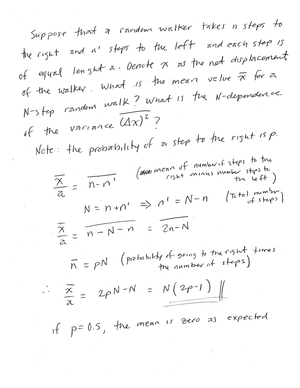 Suppose that a random walker takes n steps to
the right and n' steps to the left and each step is
of equal lenght a. Denote x as the net displacement
of the walker. What is the mean value x̅ for a
N-step random walk? What is the N-dependence
of the variance \overline{(Δx)²} ?
Note: the probability of a step to the right is p.
x̅/a = \overline{n-n'} (mean of number of steps to the
right minus number steps to
the left)
N = n+n' ⇒ n' = N-n (Total number
of steps)
x̅/a = \overline{n-N-n} = \overline{2n-N}
n̅ = pN (probability of going to the right times
the number of steps)
∴ x̅/a = 2pN-N = N(2p-1) //
if p=0.5, the mean is zero as expected